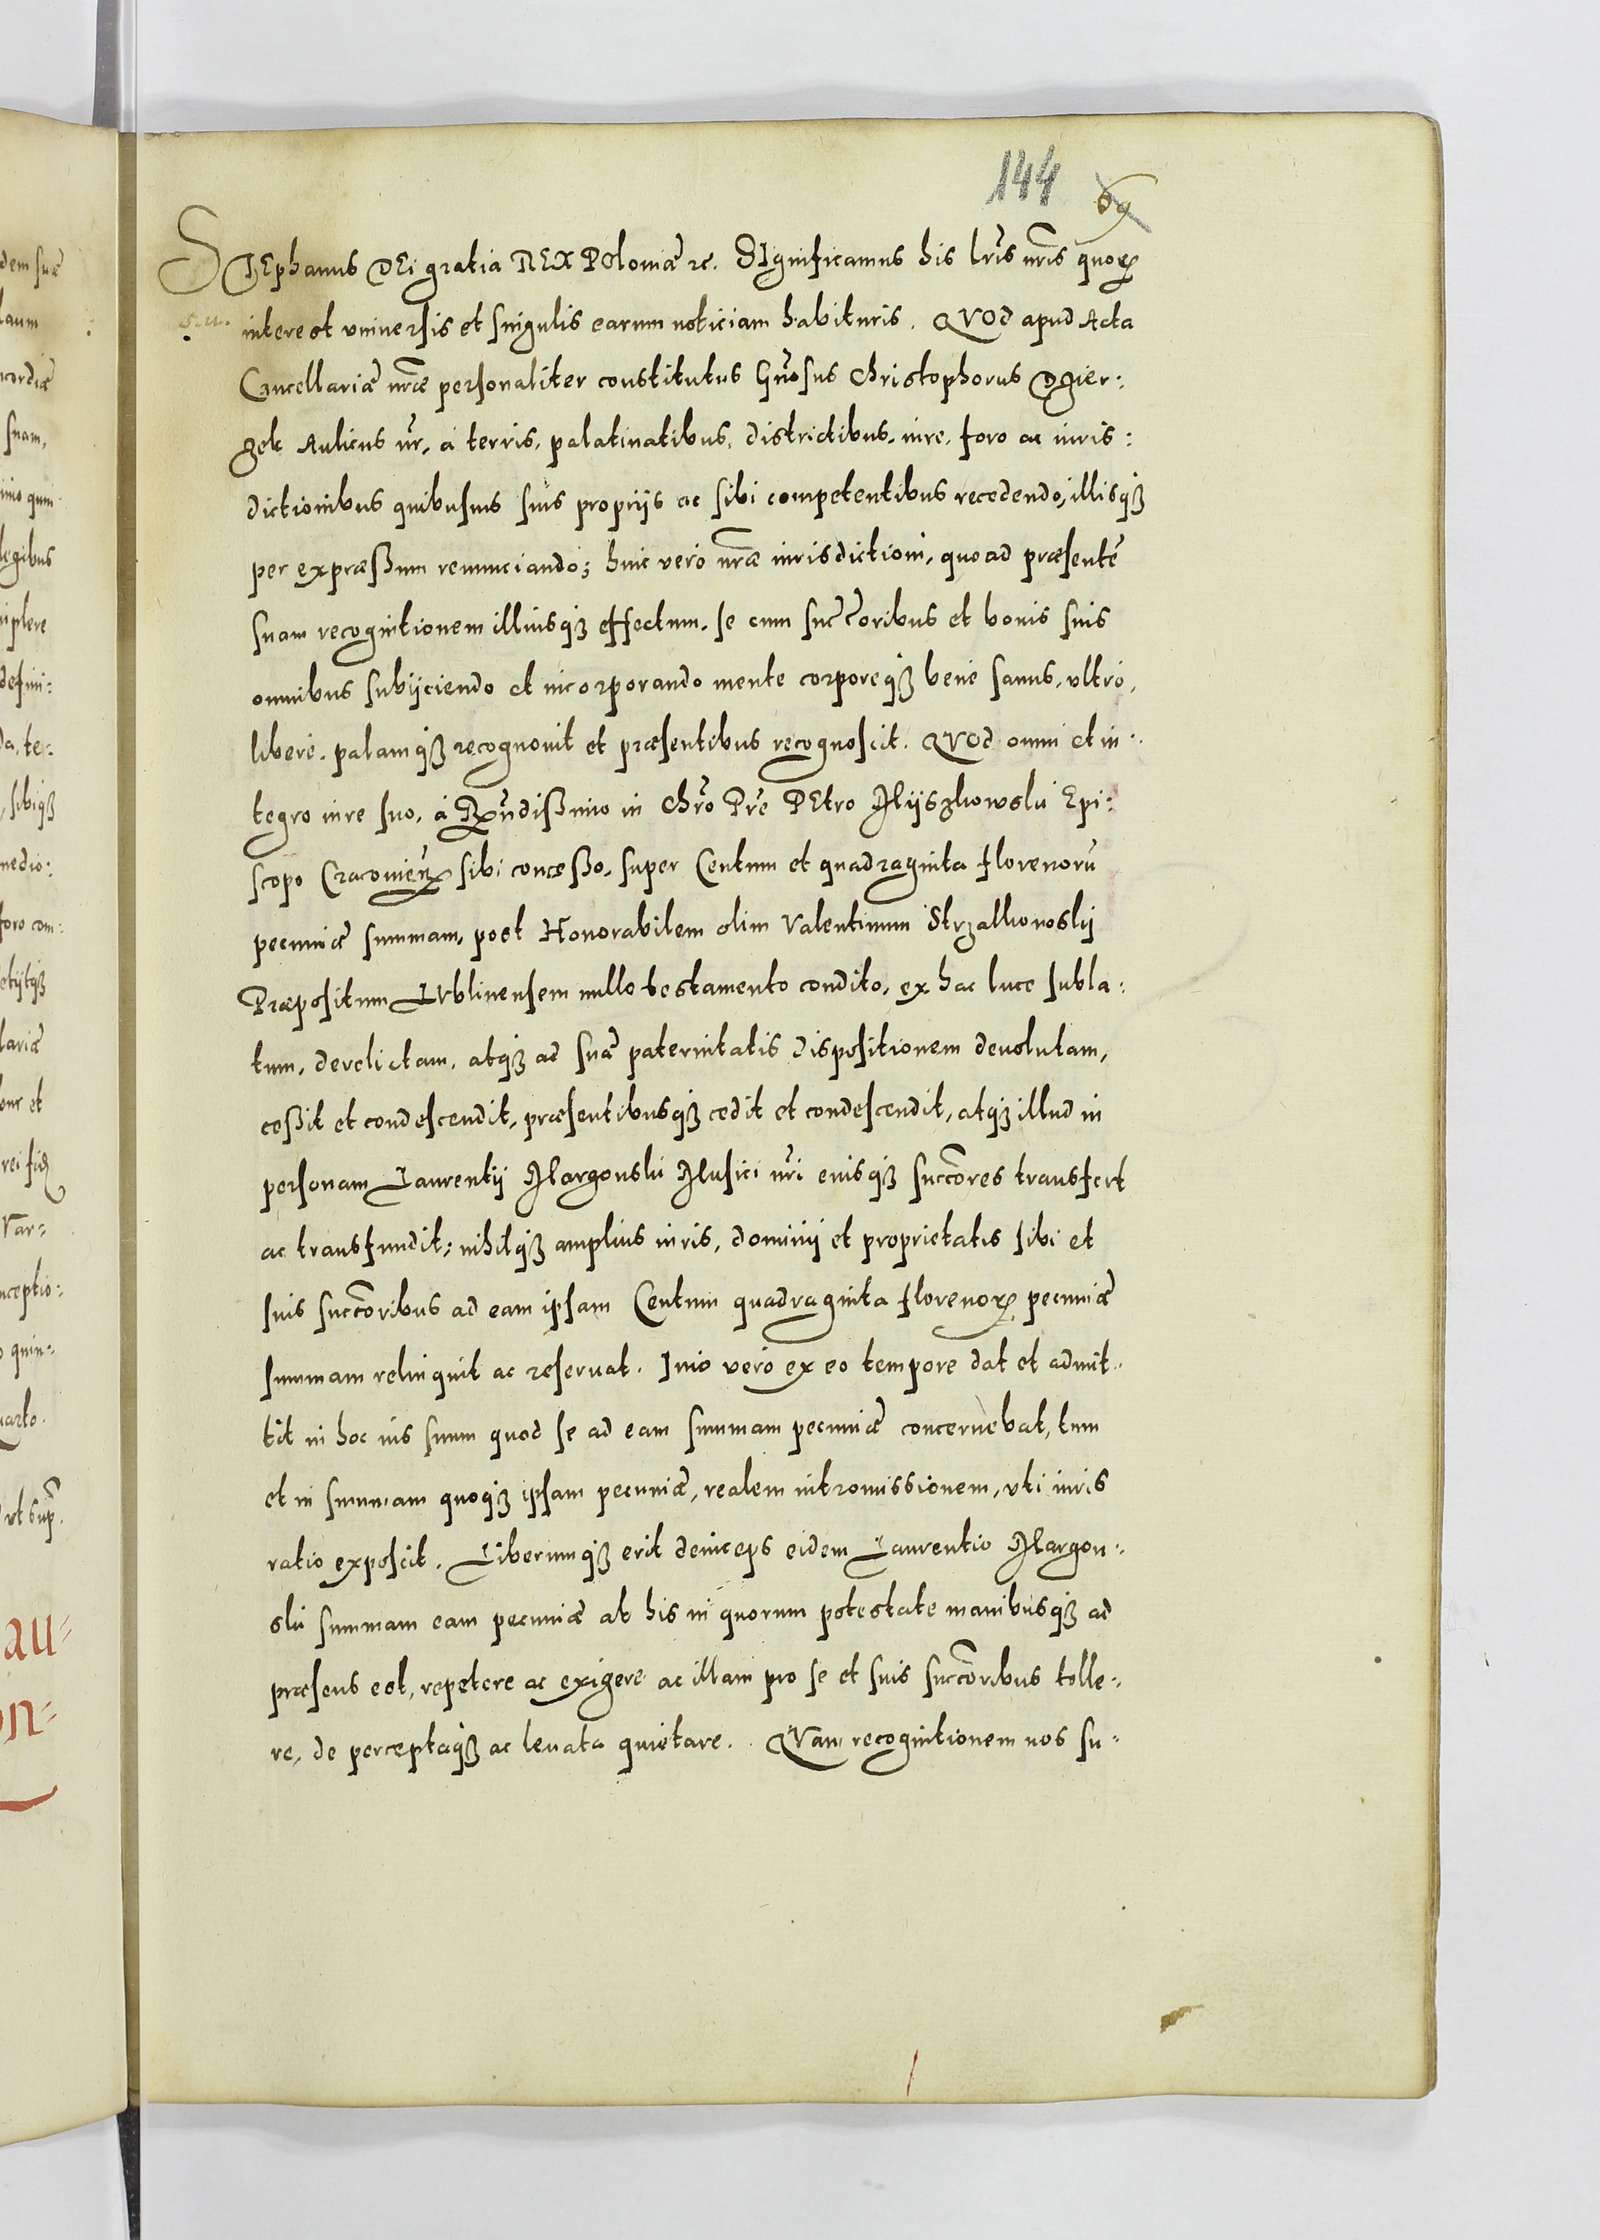 144 69
STEphanus DEi gratia REX POloniæ ꝛc. SIgnificamus his lr̃is nr̃is quoꝝ
interest vniuersis et singulis earum noticiam habituris. QVOd apud Acta
Cancellariæ nr̃æ personaliter constitutus Gn̄osus Christophorus Dzier:
zek Aulicus nr̃, à terris, palatinatibus, districtibus, iure, foro ac iuris:
dictionibus quibusuis suis proprijs ac sibi competentibus recedendo, illisqȝ
per expræßum renunciando; huic verò nr̃æ iurisdictioni, quo ad præsentē
suam recognitionem illiusqȝ effectum, se cum succ̃oribus et bonis suis
omnibus subijciendo et incorporando mente corporeqȝ benè sanus, vltrò,
liberè, palamqȝ recognouit et præsentibus recognoscit. QVOd omni et in:
tegro iure suo, à Rñdißimo in Chr̃o Pr̃e PEtro Myszkowski Epi:
scopo Cracouieñ sibi conceßo, super Centum et quadraginta florenorū
pecuniæ summam, post Honorabilem olim Valentinum Strzalkowskij
Præpositum LVblinensem nullo testamento condito, ex hac luce subla:
tum, derelictam, atqȝ ad suæ paternitatis dispositionem deuolutam,
ceßit et condescendit, præsentibusqȝ cedit et condescendit, atqȝ illud in
personam Laurentij Margonski Musici nr̃i eiusqȝ succ̃ores transfert
ac transfundit; nihilqȝ amplius iuris, dominij et proprietatis sibi et
suis succ̃oribus ad eam ipsam Centum quadraginta florenoꝝ pecuniæ
summam relinquit ac reseruat. Imò verò ex eo tempore dat et admit:
tit in hoc ius suum quod se ad eam summam pecuniæ concernebat, tum
et in summam quoqȝ ipsam pecuniæ, realem intromissionem, vti iuris
ratio exposcit. Liberumqȝ erit deinceps eidem Laurentio Margon:
ski summam eam pecuniæ ab his in quorum potestate manibusqȝ ad
præsens est, repetere ac exigere ac illam pro se et suis succ̃oribus tolle:
re, de perceptaqȝ ac leuata quietare. QVam recognitionem nos su: